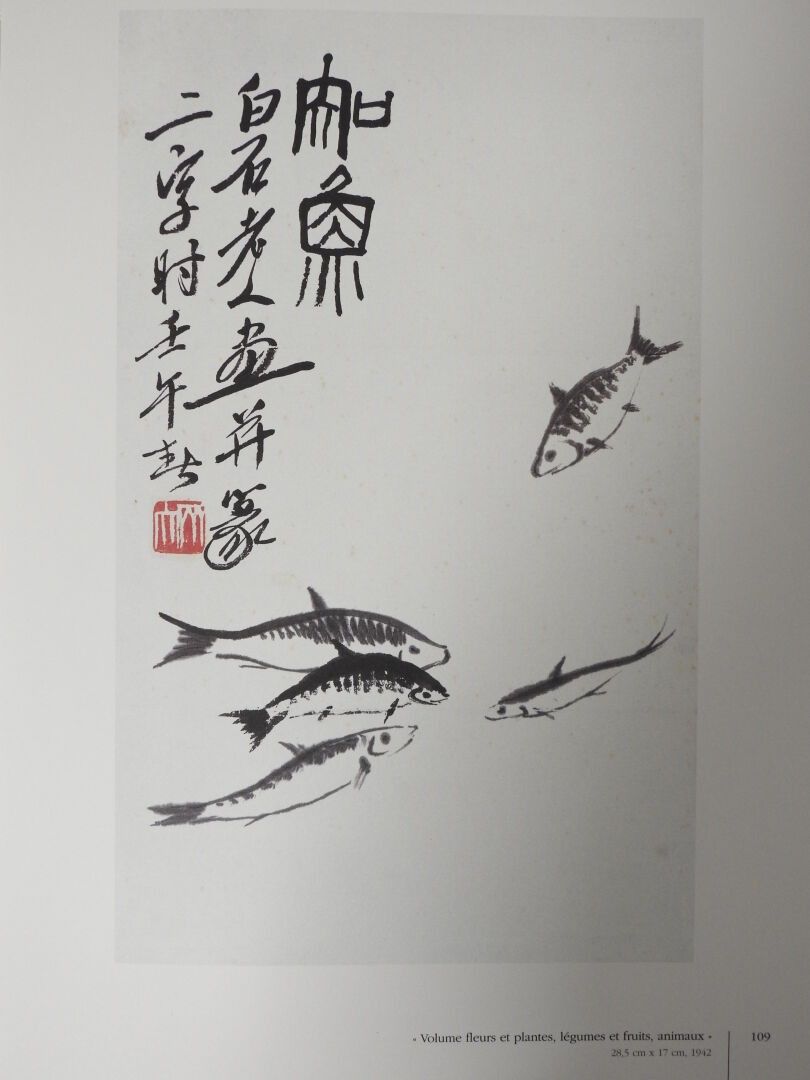 知魚
白石老人画并篆
二字时壬午春
« Volume fleurs et plantes, légumes et fruits, animaux »
28,5 cm x 17 cm, 1942
109